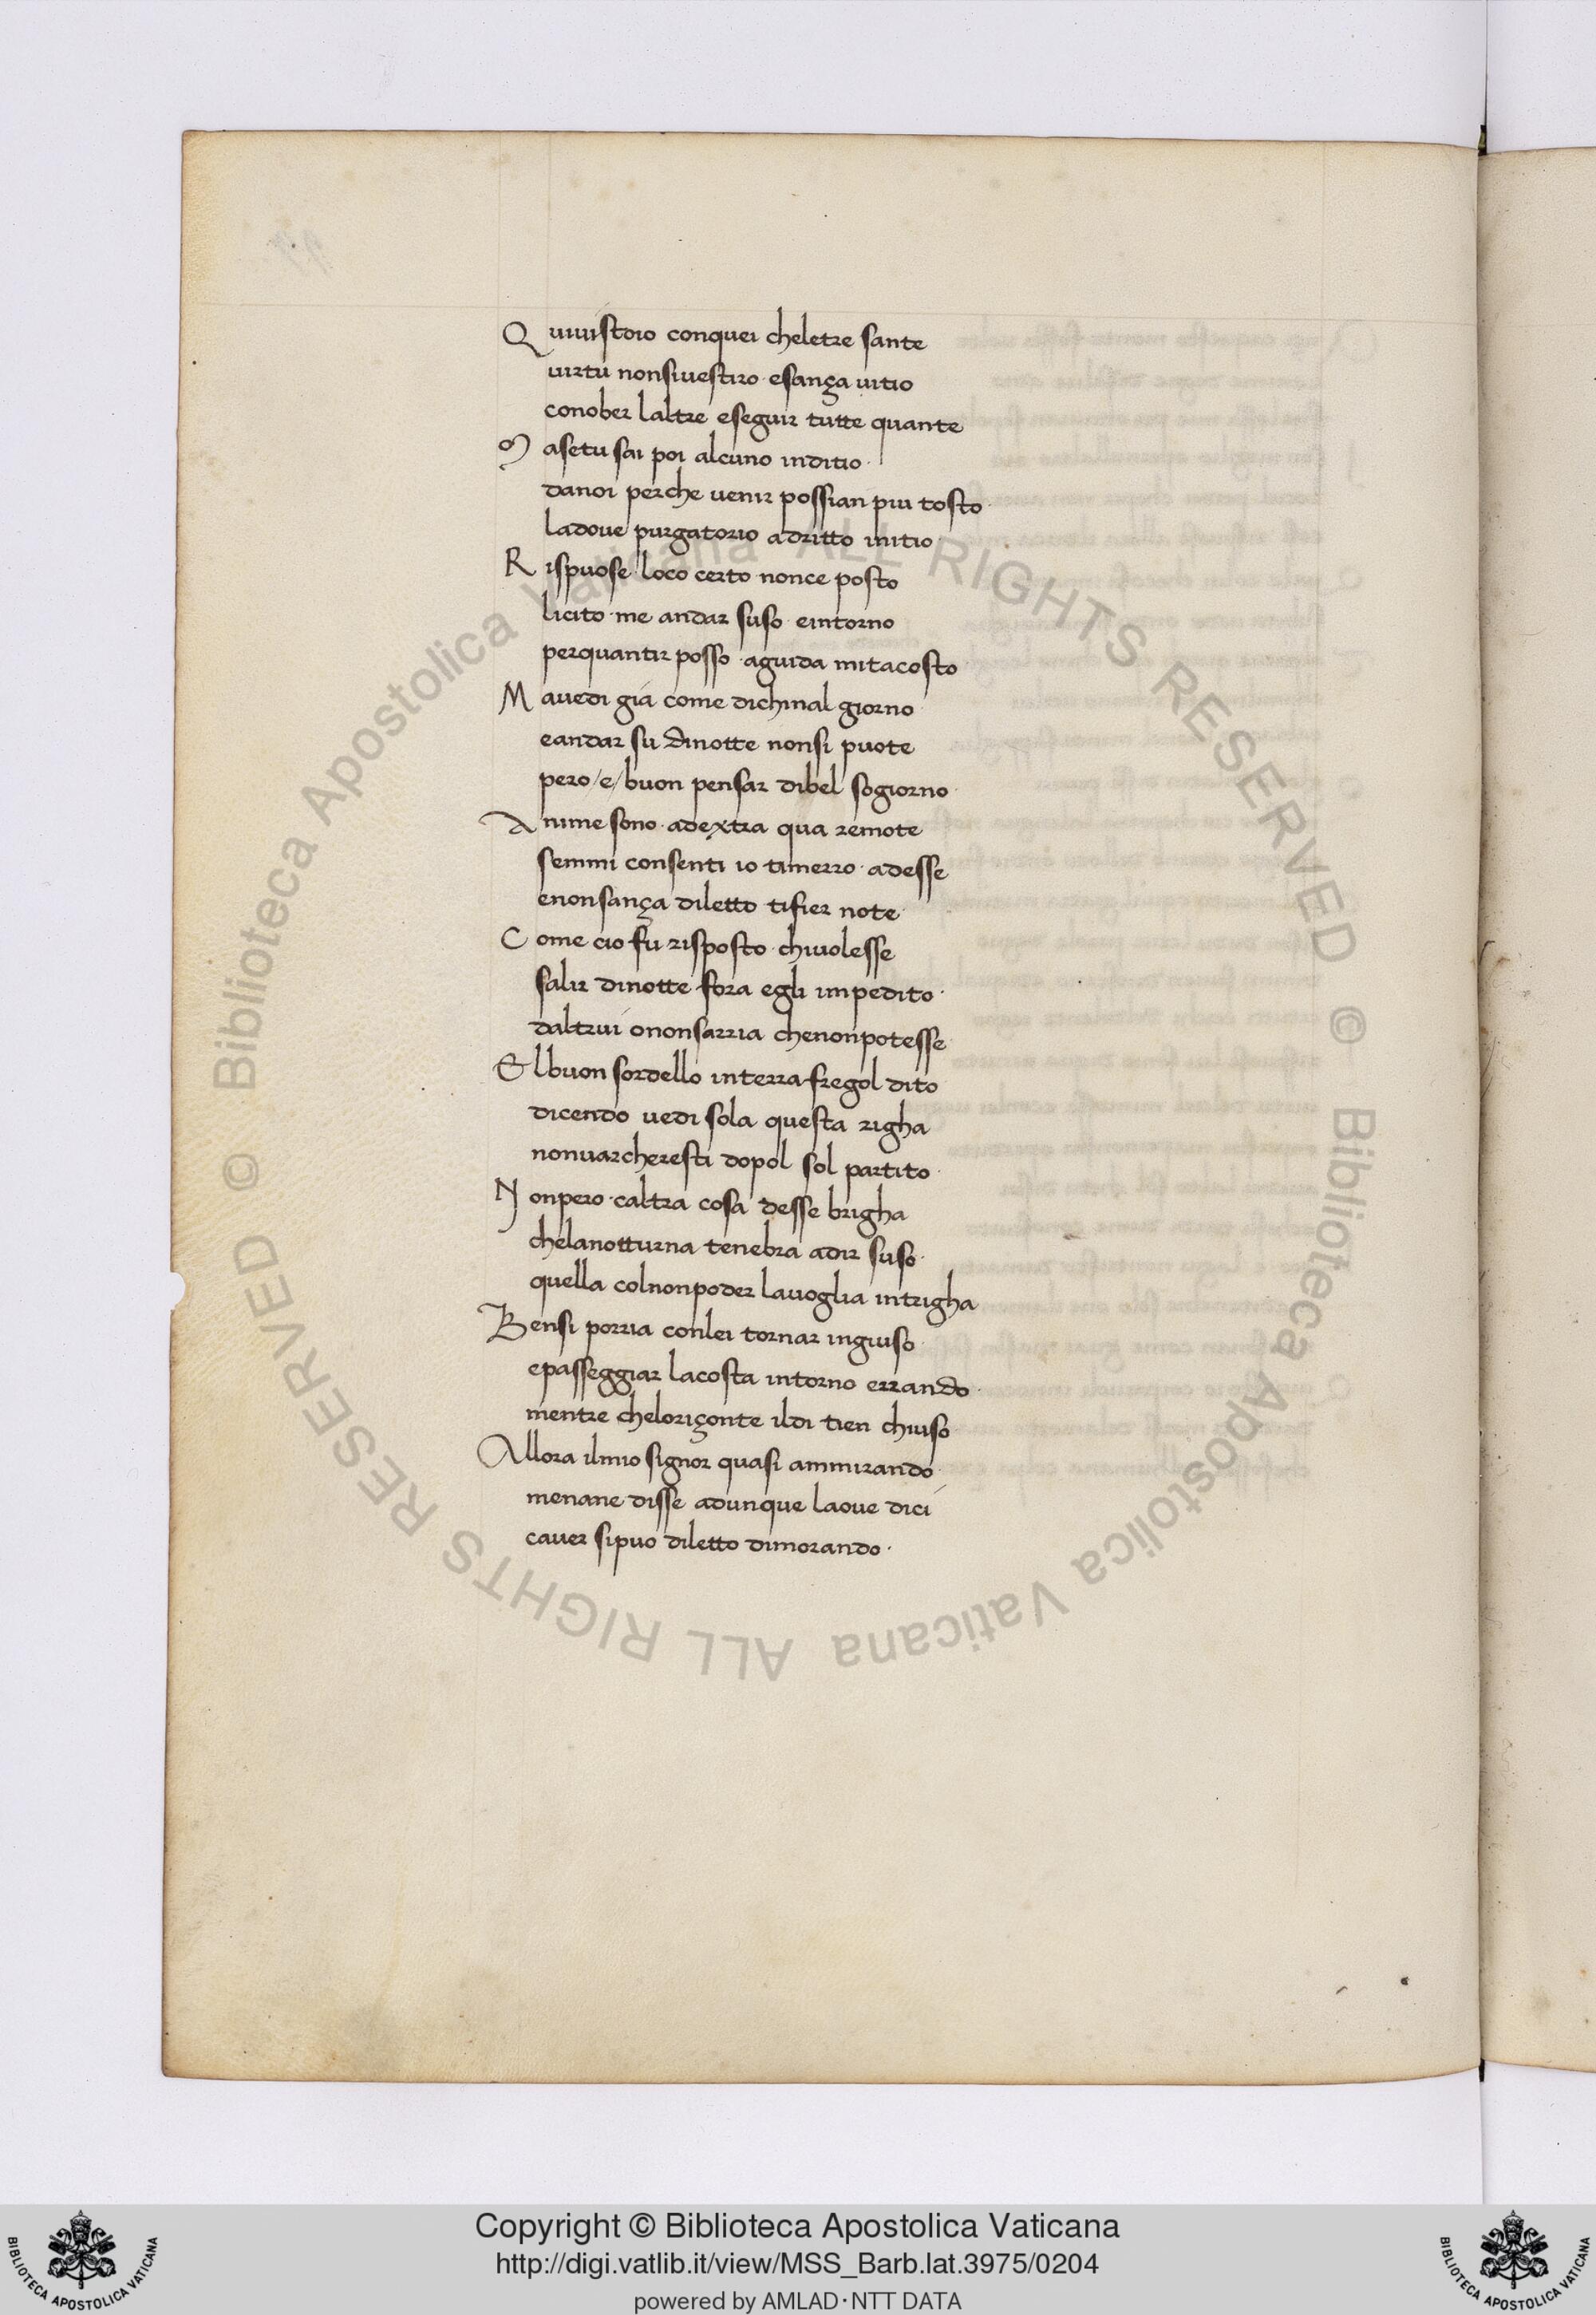 Q uiuistoio conquei cheletre sante
uirtu nonsiuestiro · esança uitio
conober laltre eseguir tutte quante
M asetu sai poi alcuno inditio ·
danoi perche uenir possian piu tosto ·
ladoue purgatorio adritto initio ·
R ispuose loco certo nonce posto
licito · me andar suso · eintorno
perquantir posso · aguida mitacosto
M auedi già come dichinal giorno
eandar su dinotte nonsi puote
pero /e/ buon pensar dibel sogiorno ·
A nime sono · adextra qua remote
semmi consenti io timerro · adesse
enonsança diletto tifier note ·
C ome cio fu risposto · chiuolesse
salir dinotte fora egli impedito ·
daltrui ononsarria chenonpotesse
E lbuon sordello interra fregol dito
dicendo uedi sola questa righa
nonuarcheresti dopol sol partito ·
N onpero · caltra cosa desse brigha
chelanotturna tenebra adir suso ·
quella colnonpoder lauoglia intrigha
B ensi porria conlei tornar ingiuso
epasseggiar lacosta intorno errando ·
mentre cheloriçonte ildi tien chiuso
Allora ilmio signor quasi ammirando ·
menane disse adunque laoue dici
cauer sipuo diletto dimorando ·
© Biblioteca Apostolica Vaticana ALL RIGHTS RESERVED
© Biblioteca Apostolica Vaticana ALL RIGHTS RESERVED
Copyright © Biblioteca Apostolica Vaticana
http://digi.vatlib.it/view/MSS_Barb.lat.3975/0204
powered by AMLAD·NTT DATA
BIBLIOTECA APOSTOLICA VATICANA
BIBLIOTECA APOSTOLICA VATICANA